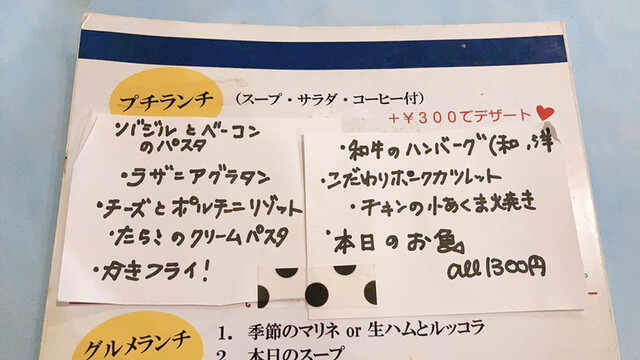 プチランチ (スープ・サラダ・コーヒー付)
+¥300でデザート♥
・バジルとベーコン
のパスタ
・ラザニアグラタン
・チーズとポルチーニリゾット
・たらこのクリームパスタ
・かきフライ!
・和牛のハンバーグ(和,洋
・こだわりポークカツレット
・チキンの小あくま焼き
・本日のお魚
all 1300円
グルメランチ
1. 季節のマリネ or 生ハムとルッコラ
2. 本日のスープ